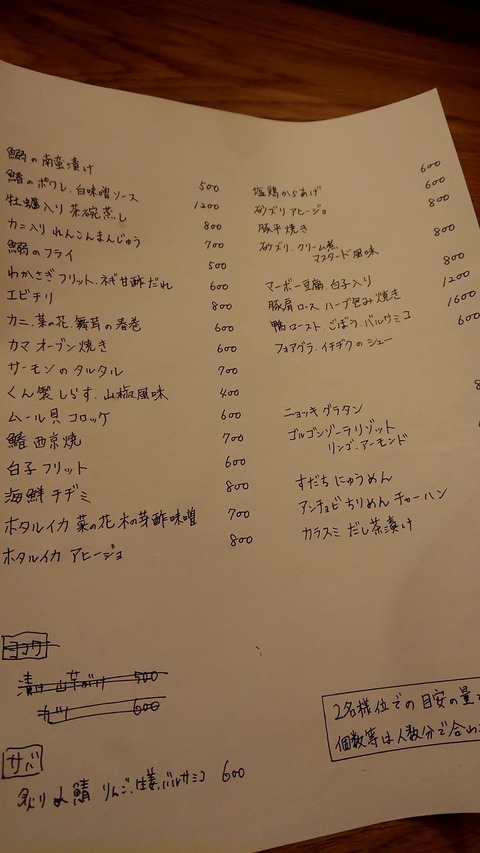 鰯の南蛮漬け 500
鰆のポワレ 白味噌ソース 1200
牡蠣入り茶碗蒸し 800
カニ入りれんこんまんじゅう 700
鰯のフライ 500
わかさぎフリット、ネギ甘酢だれ 600
エビチリ 800
カニ、菜の花、舞茸の春巻 600
カマ オーブン焼き 600
サーモンのタルタル 700
くん製しらす、山椒風味 400
ムール貝コロッケ 600
鰆西京焼 700
白子フリット 600
海鮮チヂミ 800
ホタルイカ 菜の花 木の芽酢味噌 700
ホタルイカ アヒージョ 800
漬け 山芋がけ 500
600
サバ
炙り〆鯖 りんご、生姜、バルサミコ 600
塩鶏からあげ 600
砂ズリ アヒージョ 600
豚平焼き 800
砂ズリ、クリーム煮、
マスタード風味 800
マーボー豆腐 白子入り 800
豚肩ロース ハーブ包み焼き 1200
鴨ロースト、ごぼう、バルサミコ 1600
フォアグラ、イチヂクのシュー 600
ニョッキグラタン
ゴルゴンゾーラリゾット
リンゴ、アーモンド
すだちにゅうめん
アンチョビちりめんチャーハン
カラスミだし茶漬け
2名様位での目安の量
個数等は人数分で合わ